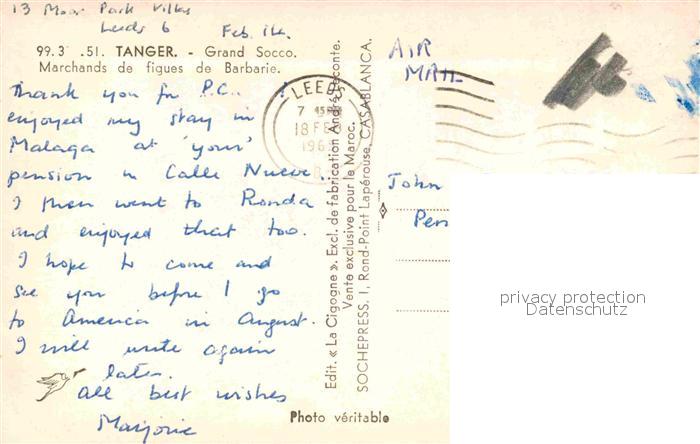 13 Moor Park Villas
Leeds 6 Feb. 16.
99.3 .51. TANGER. - Grand Socco.
Marchands de figues de Barbarie.
Thank you for P.C. I
enjoyed my stay in
Malaga at 'your'
pension in Calle Nueva.
I then went to Ronda
and enjoyed that too.
I hope to come and
see you before I go
to America in August.
I will write again
later.
All best wishes
Marjorie
Edit. « La Cigogne ». Excl. de fabrication André Leconte.
Vente exclusive pour le Maroc.
SOCHEPRESS. 1, Rond-Point Lapérouse, CASABLANCA.
Photo véritable
LEEDS
18 FEB
196
AIR
MAIL
John
Pen
privacy protection
Datenschutz